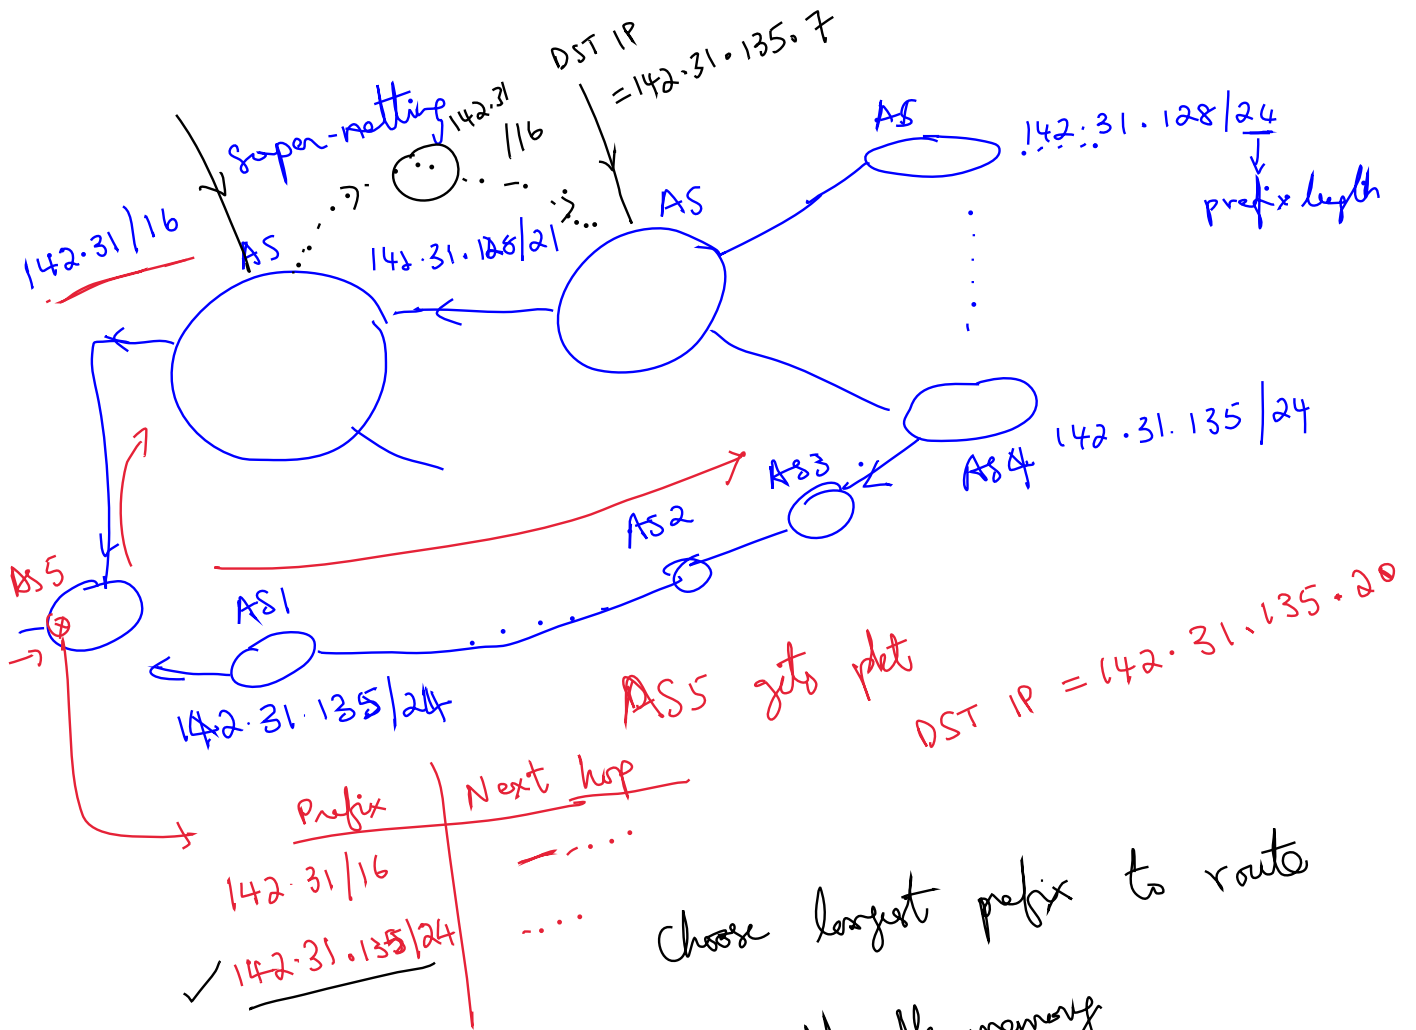 DST IP
= 142.31.135.7
super-netting
142.31
/16
AS
142.31.128/24
prefix length
142.31/16
AS
142.31.128/21
AS
142.31.135/24
AS4
AS3
AS2
AS5
AS1
142.31.135/24
AS5 gets pkt
DST IP = 142.31.135.20
Prefix
Next hop
142.31/16
142.31.135/24
choose longest prefix to route
memory